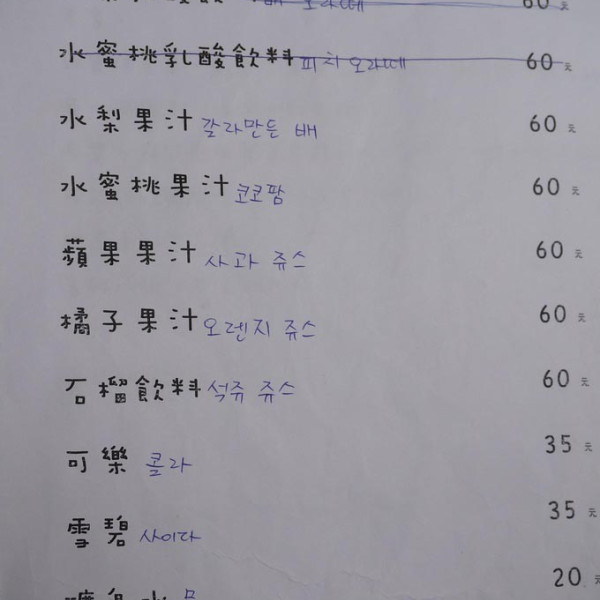 오라떼 60 元
水蜜桃乳酸飲料 피치 오라떼 60 元
水梨果汁 갈라만든 배 60 元
水蜜桃果汁 코코팜 60 元
蘋果果汁 사과 쥬스 60 元
橘子果汁 오렌지 쥬스 60 元
石榴飲料 석쥬 쥬스 60 元
可樂 콜라 35 元
雪碧 사이다 35 元
水 20 元